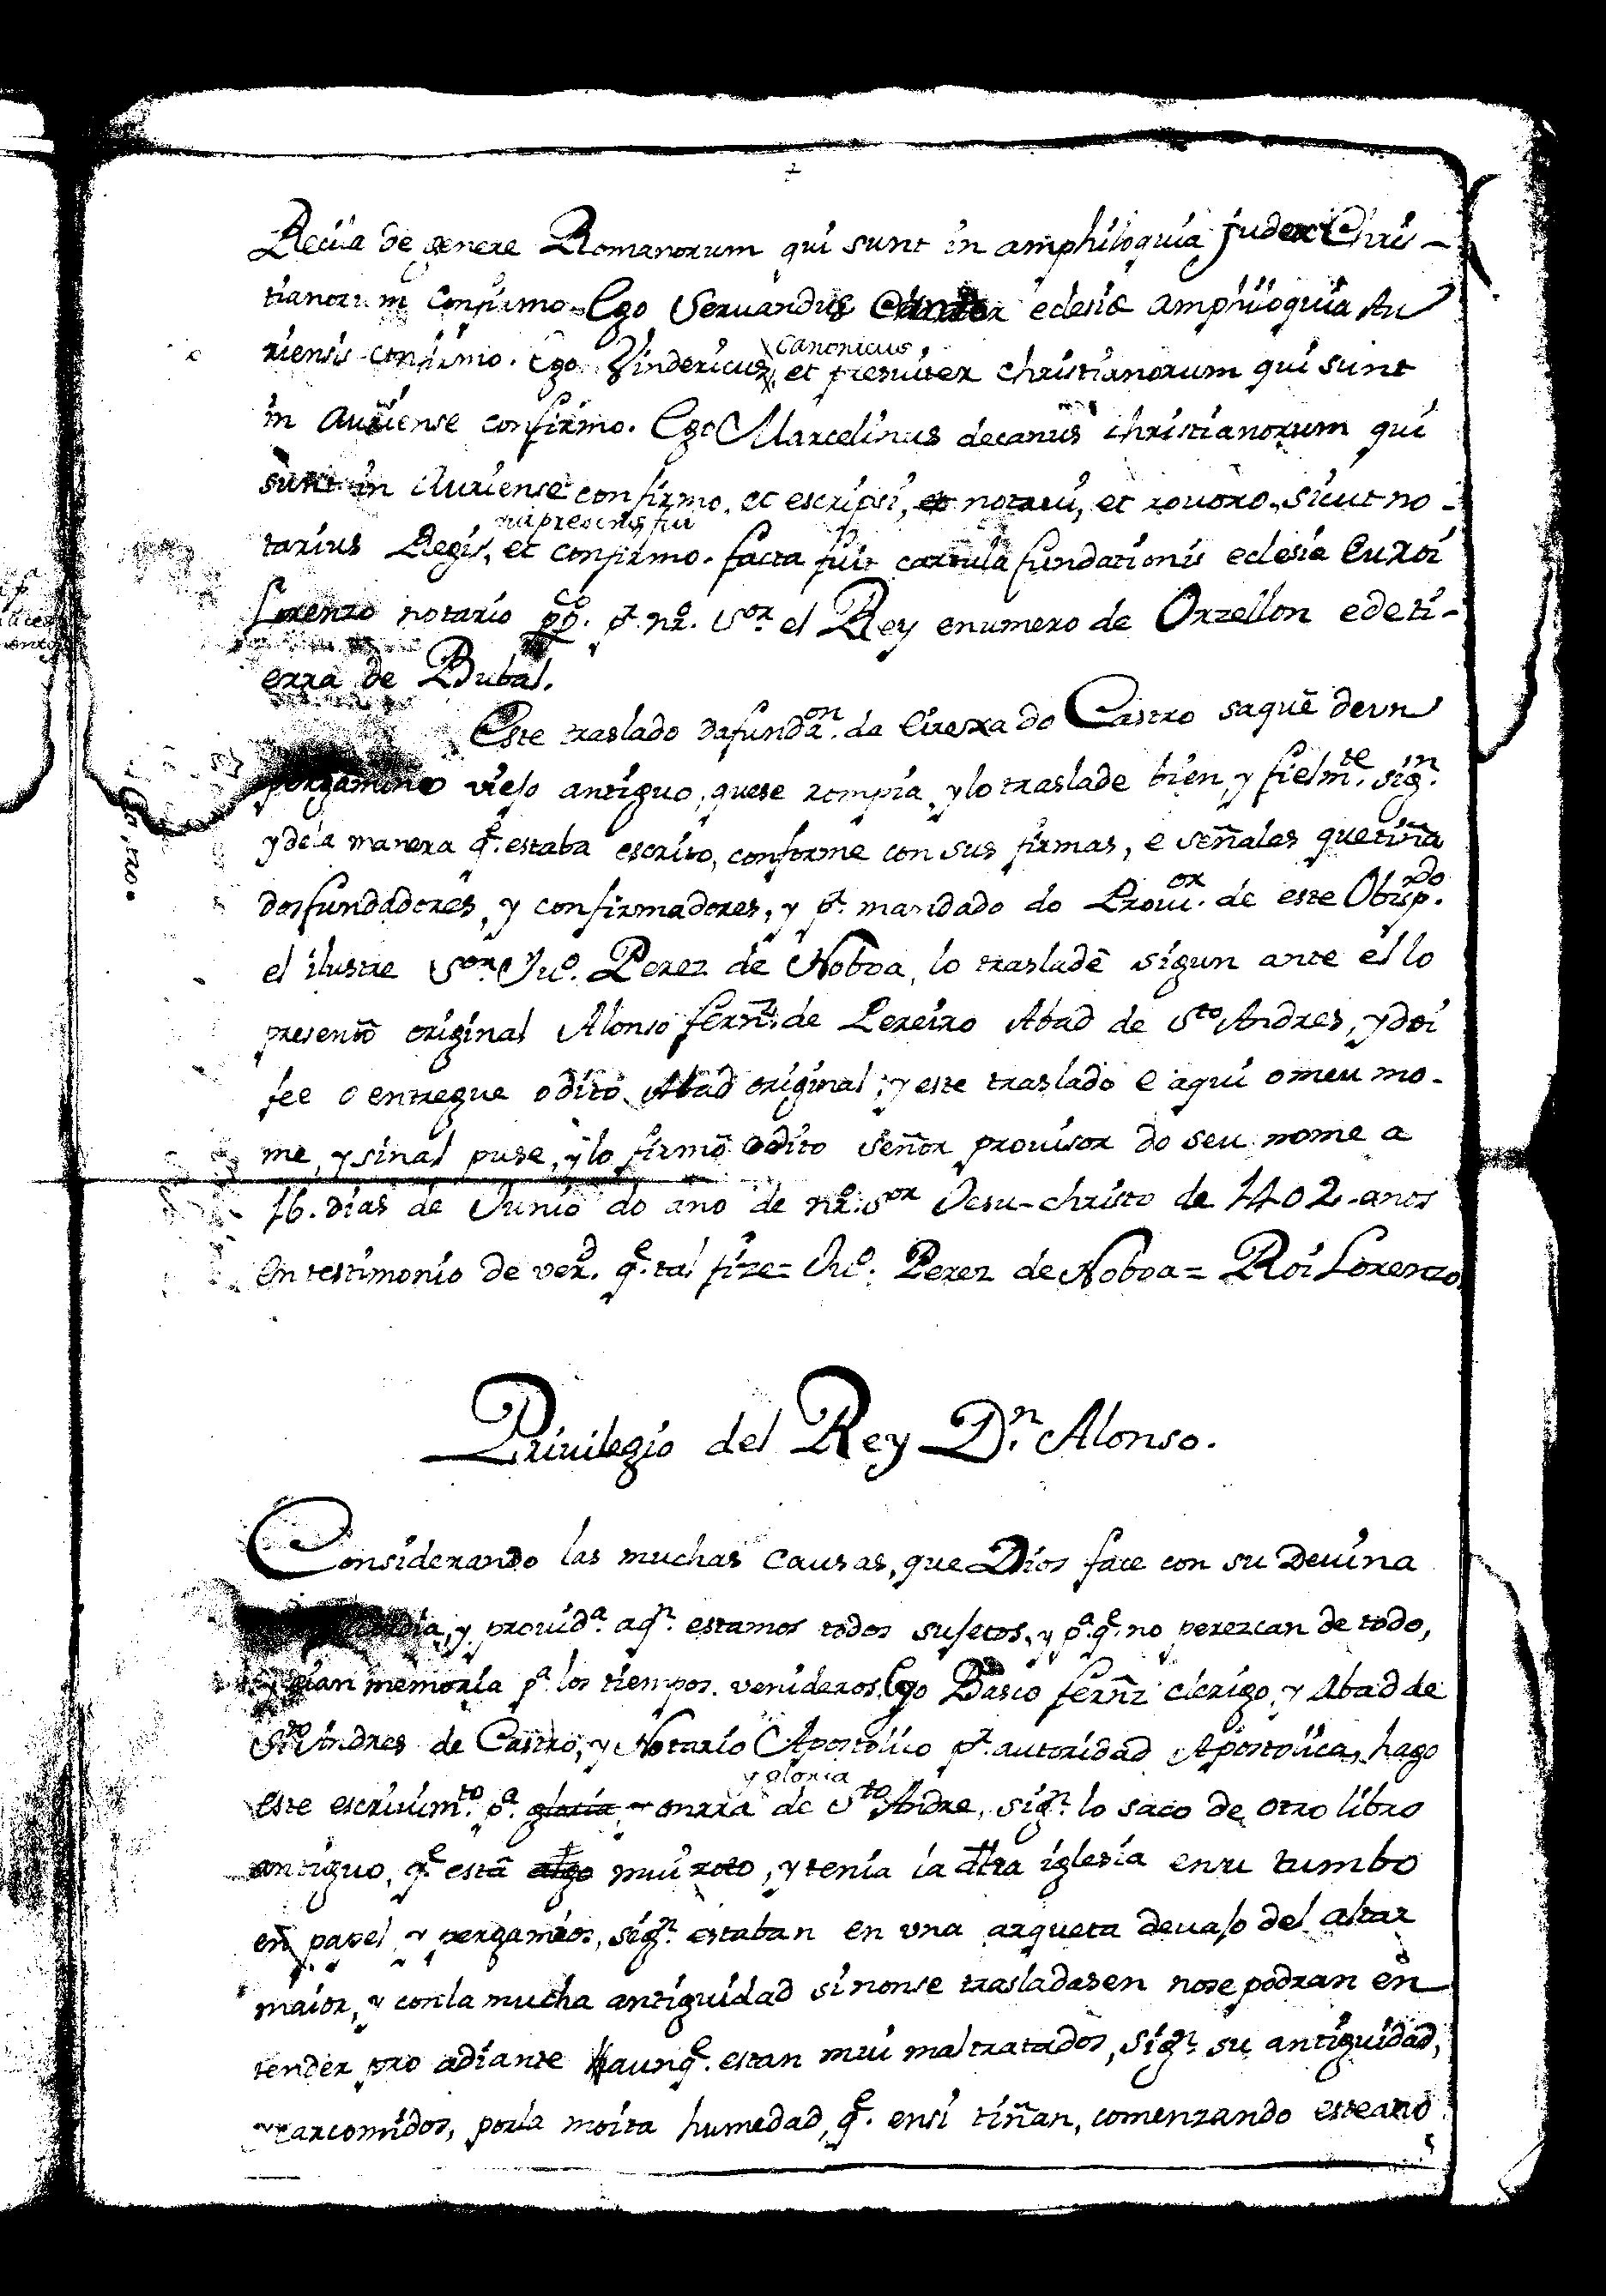 Recila de genere Romanorum qui sunt in amphiloquia judex Chris-
tianorum confirmo. Ego Servandus eclesie amphiloquia Au
riensis confirmo. Ego Vindericus, canonicus, et presviter christianorum qui sunt
in Auriense confirmo. Ego Marcelinus decanus christianorum qui
sunt in Auriense confirmo, et escripsi, et notavi, et rovoro, sicut no-
tarius Regis, et confirmo. facta fuit cartula fundationis eclesia Eu Roi
Lorenzo notario pp.co pr. nro. Sor. el Rey enumero de Orzellon e de ti-
erra de Bubal.
Este traslado da fundaon. da Eirexa do Castro saquê de vn
pergamino viejo antiguo, que se rompia, y lo traslade bien, y fielmte. sign.
y de la manera qe. estaba escrito, conforme con sus firmas, e señales que tiña
dos fundadores, y confirmadores, y pr. mandado do Provior. de este Obispdo.
el ilustre Sor. Juo. Perez de Noboa, lo trasladê sigun ante el lo
presentô original Alonso fernz. de Pereiro Abad de Sto Andres, y doi
fee o entregue o dito Abad original, y este traslado e aqui o meu mo-
me, y sinal puse, y lo firmô o dito señor provisor do seu nome a
16. dias de Junio do año de nro. Sor Jesu-christo de 1402 anos
en testimonio de verd. qe. tal fize = Juo. Perez de Noboa = Roi Lorenzo
Privilegio del Rey Dn. Alonso.
Considerando las muchas causas, que Dios face con su Devina
y provida. a qn. estamos todos sujetos, y pa. qe. no perezcan de todo,
memoria pa. los tiempos venideros. Ego Basco fernz clerigo, y Abad de
Sto Andres de Castro, y Notario Apostolico pr. autoridad Apostolica, hago
este escrivimto. pa. gloria y onrra y gloria de Sto Andre, sign. lo saco de otro libro
antiguo, qe. estâ algo mui roto, y tenia la dtra iglesia en u tumbo
en papel y pergamios, sign. estaban en vna arqueta devajo del altar
maior, y con la mucha antiguidad si non se trasladasen no se podran en
tender pro adiante aunqe. estan mui maltratados, sign. su antiguidad,
y carcomidos, por la moita humedad, qe. en si tiñan, comenzando este ano